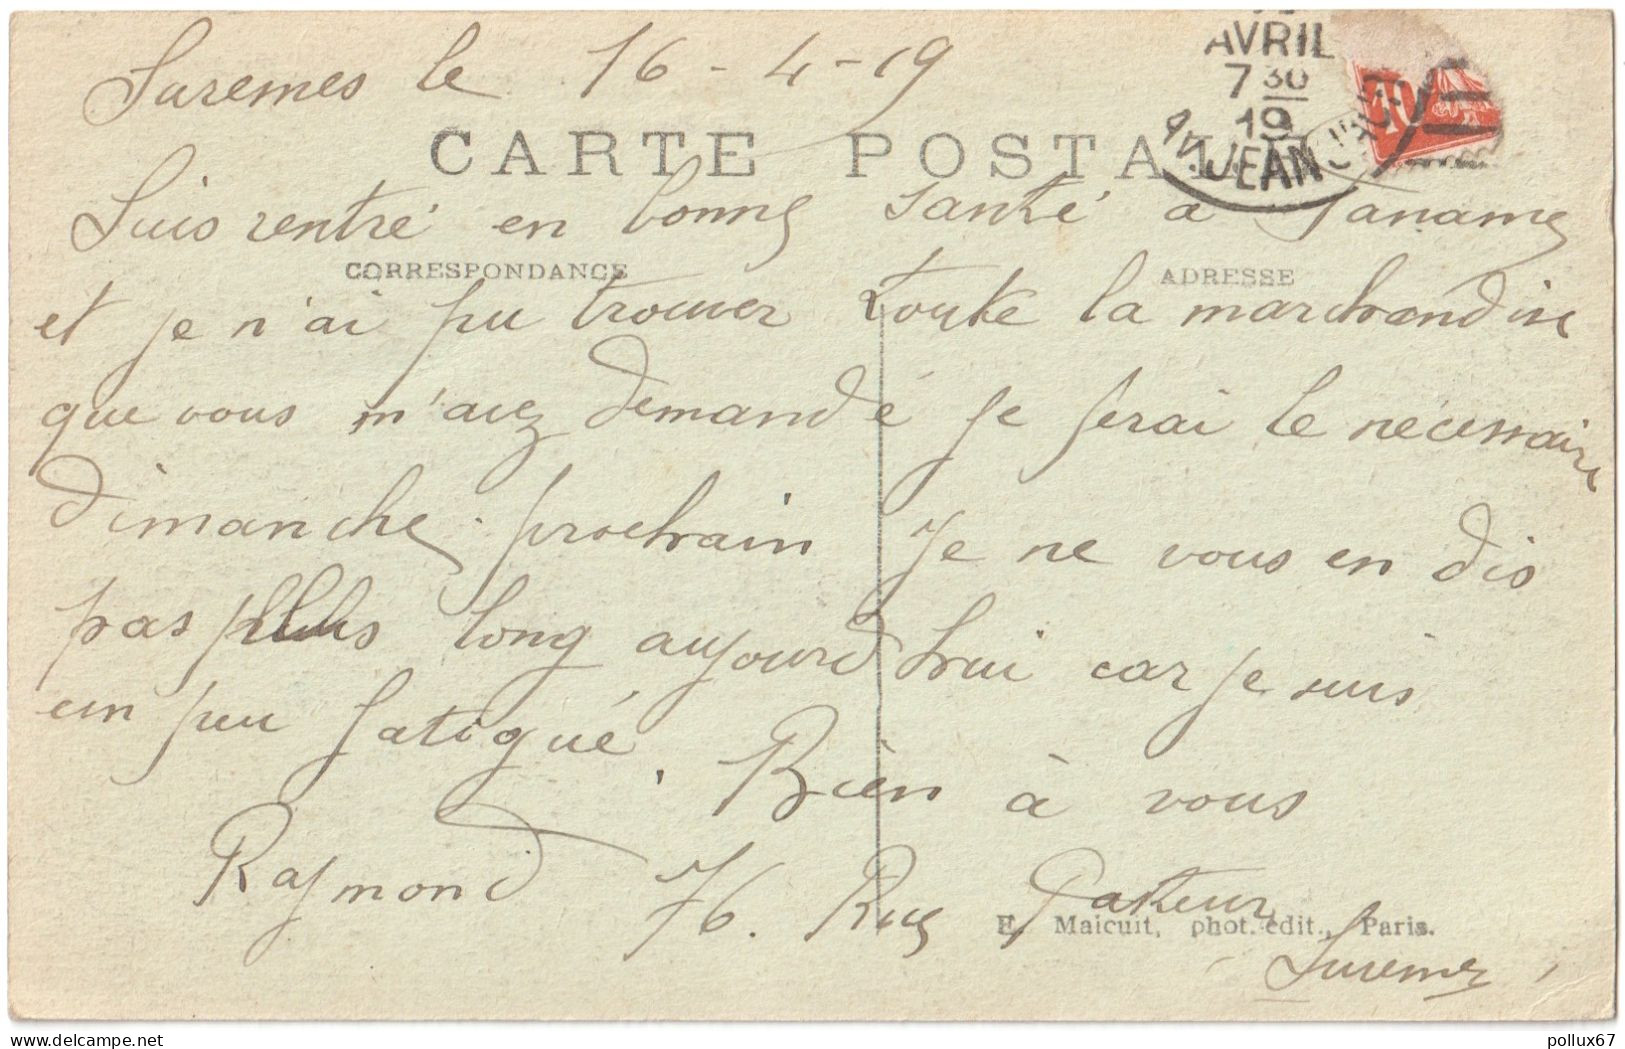 Suresnes le 16-4-19
AVRIL
7 30
19
AV. JEAN
10
CARTE POSTALE
Suis rentré en bonne santé à Paname
CORRESPONDANCE
ADRESSE
et je n'ai pu trouver toute la marchandise
que vous m'avez demandé je ferai le nécessaire
dimanche prochain Je ne vous en dis
pas plus long aujourd'hui car je suis
un peu fatigué. Bien à vous
Raymond 76. Rue Pasteur
E. Maicuit, phot. édit., Paris.
Suresnes
pollux67